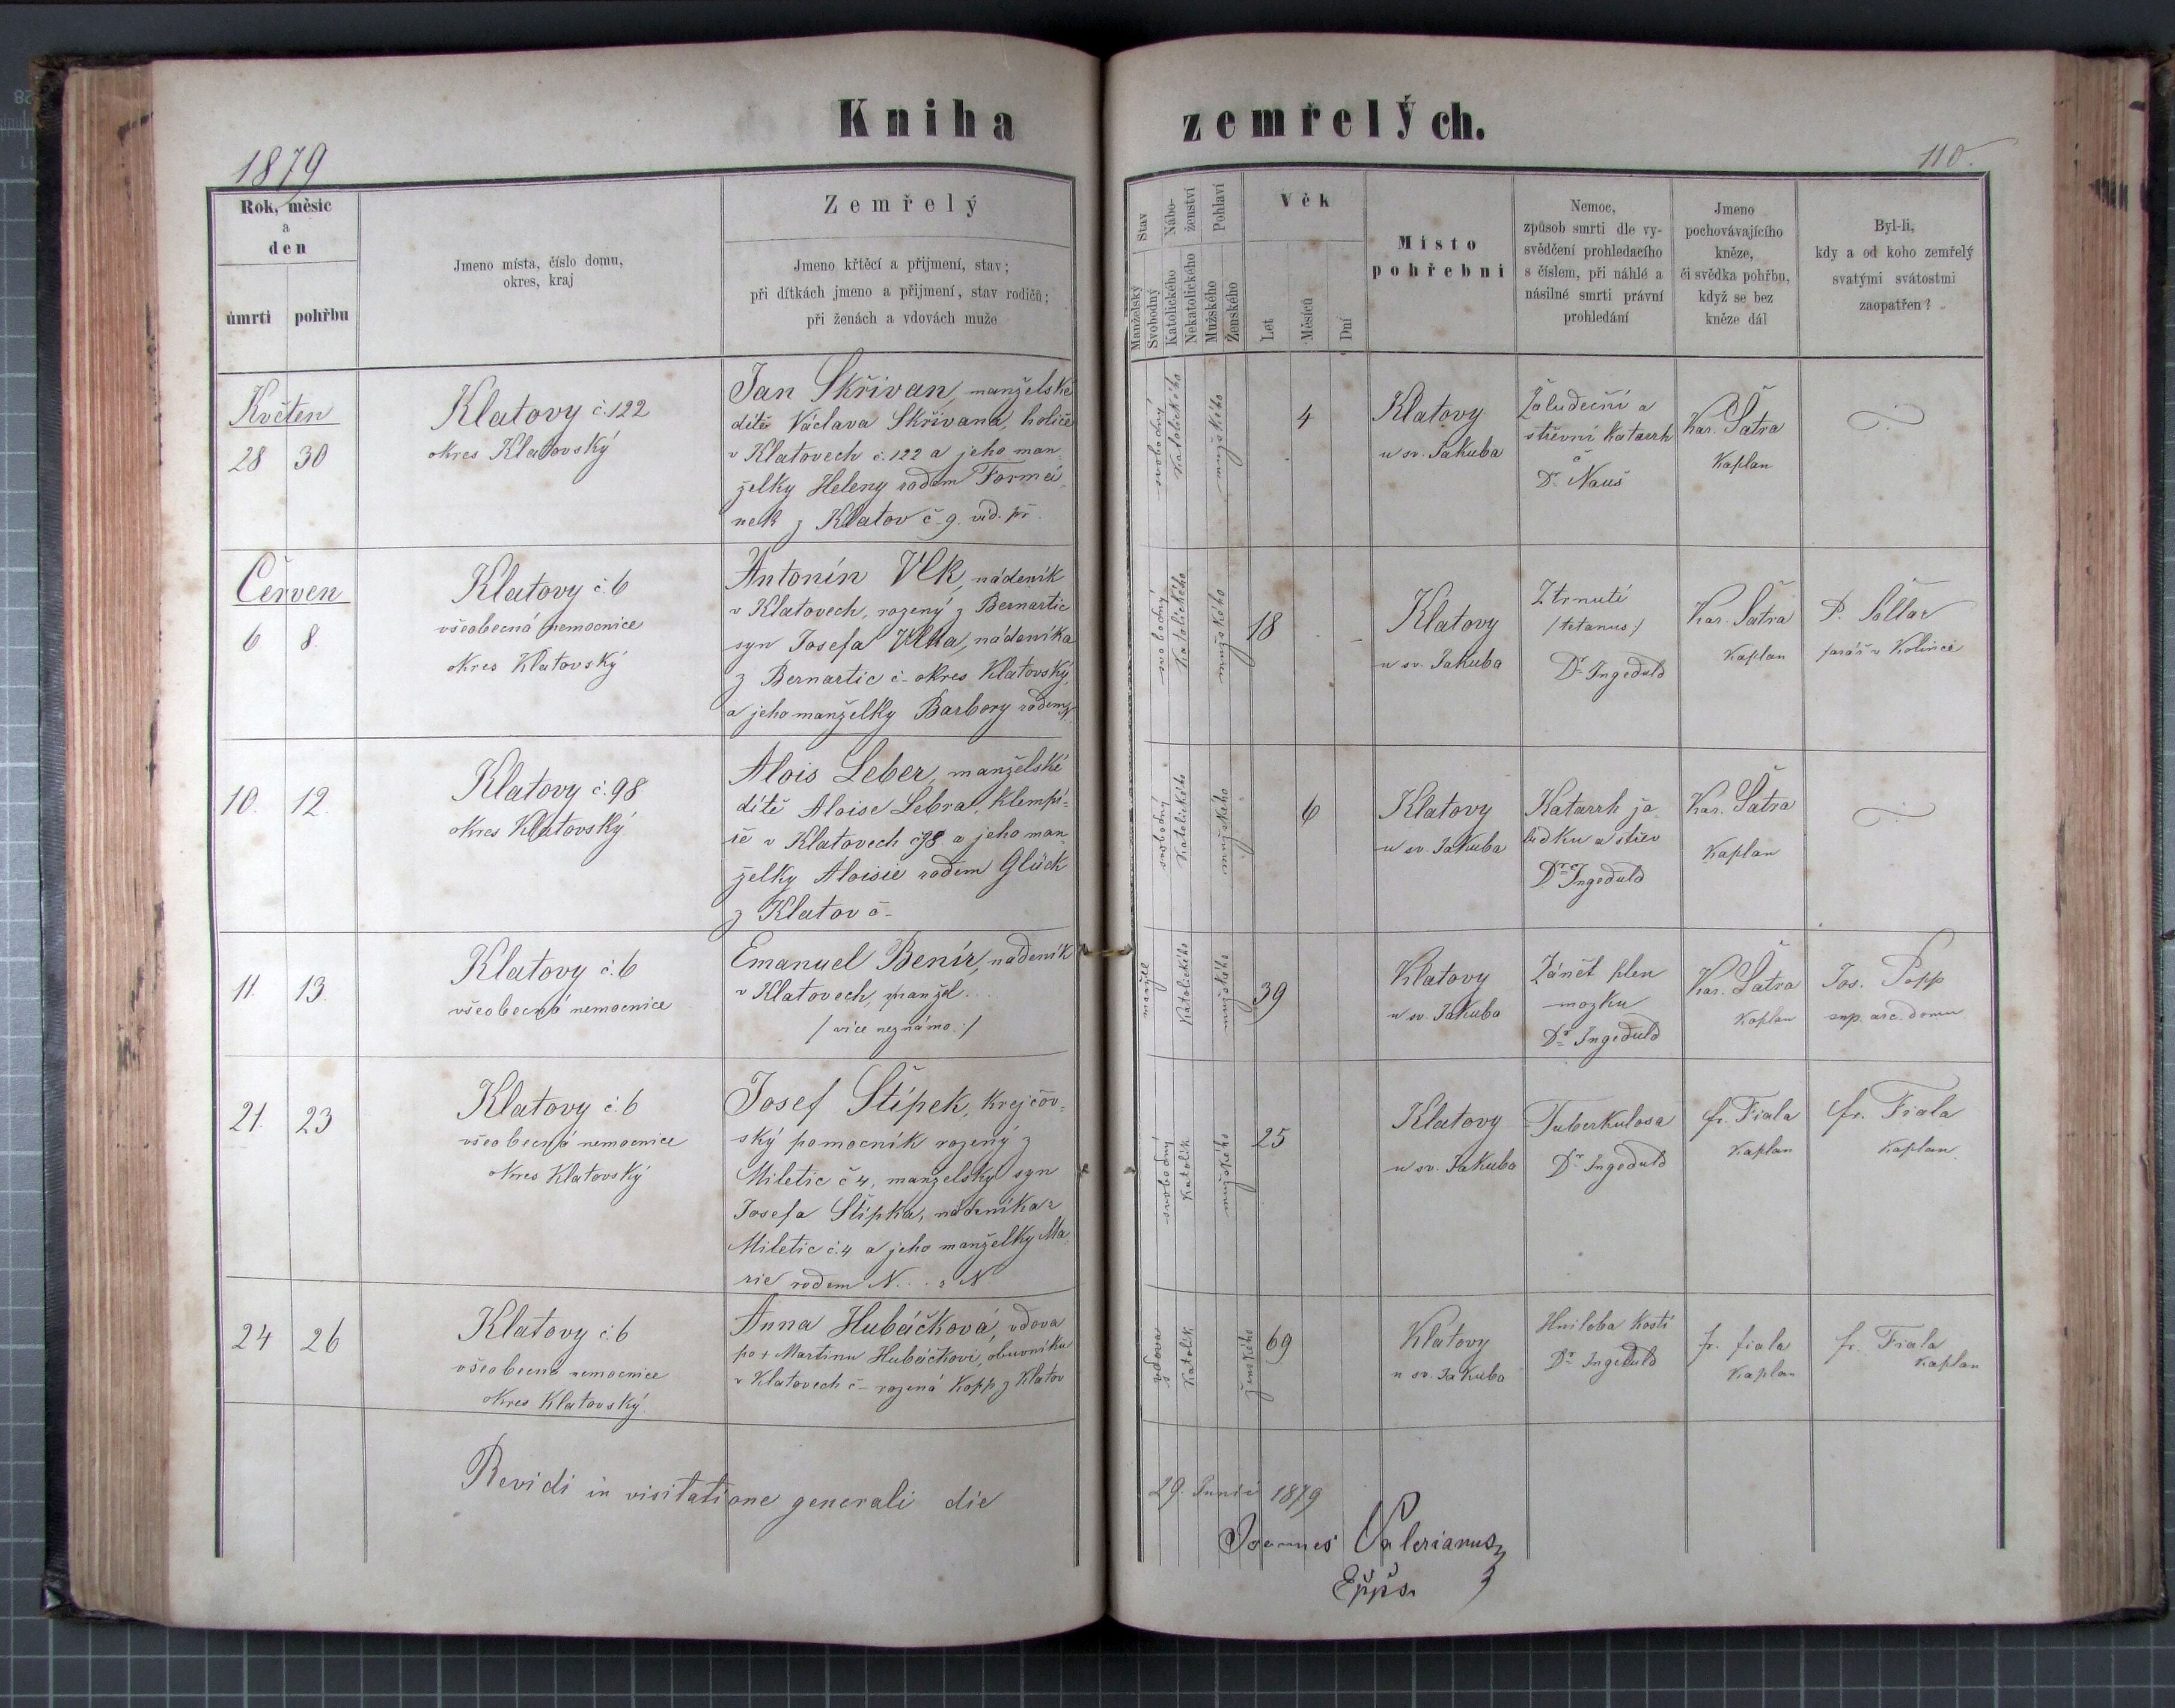 Kniha zemřelých.
1879
110.
Rok, měsíc
a
den
úmrtí
pohřbu
Jmeno místa, číslo domu,
okres, kraj
Zemřelý
Jmeno křtěcí a přijmení, stav;
při dítkách jmeno a přijmení, stav rodičů;
při ženách a vdovách muže
Stav
Manželský
Svobodný
Nábo-
ženství
Katolického
Nekatolického
Pohlaví
Mužského
Ženského
Věk
Let
Měsíců
Dní
Místo
pohřební
Nemoc,
způsob smrti dle vy-
svědčení prohledacího
s číslem, při náhlé a
násilné smrti právní
prohledání
Jmeno
pochovávajícího
kněze,
či svědka pohřbu,
když se bez
kněze dál
Byl-li,
kdy a od koho zemřelý
svatými svátostmi
zaopatřen?
Květen
28 30
Klatovy č. 122
okres Klatovský
Jan Skřivan, manželské
dítě Václava Skřivana, holiče
v Klatovech č. 122 a jeho man
želky Heleny rodem Formá-
nek z Klatov č. 9. vid. př.
svobodný
Katolického
mužského
4
Klatovy
u sv. Jakuba
Žaludeční a
střevní Katarrh
č
Dr. Nauš
Kar. Šatra
Kaplan
Červen
6 8.
Klatovy č. 6
všeobecná nemocnice
okres Klatovský
Antonín Vlk, nádeník
v Klatovech, rozený z Bernartic
syn Josefa Vlka, nádeníka
z Bernartic č- okres Klatovský,
a jeho manželky Barbory rodem
svobodný
Katolického
mužského
18 . -
Klatovy
u sv. Jakuba
Ztrnutí
/tetanus/
Dr. Ingeduld
Kar. Šatra
Kaplan
P.
farář v Kolinci
10. 12.
Klatovy č. 98
okres Klatovský
Alois Leber, manželské
dítě Aloise Lebra, Klempí-
ře v Klatovech č 98. a jeho man
želky Aloisie rodem Glück
z Klatov č-
svobodný
Katolického
mužského
6
Klatovy
u sv. Jakuba
Katarrh ža
ludku a střev
Dr. Ingeduld
Kar. Šatra
Kaplan
11. 13.
Klatovy č. 6
všeobecná nemocnice
Emanuel Benír, nádeník
v Klatovech, manžel...
/ více neznámo :/
manžel
Katolického
mužského
39
Klatovy
u sv. Jakuba
Zánět plen
mozku
Dr. Ingeduld
Kar. Šatra
Kaplan
Jos. Popp
sup. arc. domu
21. 23
Klatovy č. 6
všeobecná nemocnice
okres Klatovský
Josef Štípek, Krejčov-
ský pomocník rozený z
Miletic č 4, manželský syn
Josefa Štípka, nádeníka z
Miletic č. 4 a jeho manželky Ma-
rie rodem N... z N.
svobodný
Katolík
mužského
25
Klatovy
u sv. Jakuba
Tuberkulosa
Dr. Ingeduld
fr. Fiala
Kaplan
fr. Fiala
Kaplan.
24 26
Klatovy č. 6
všeobecná nemocnice
okres Klatovský.
Anna Hubáčková, vdova
po + Martinu Hubáčkovi, obuvníku
v Klatovech č- rozená Kopp z Klatov
vdova
Katolík
ženského
69
Klatovy
u sv. Jakuba
Hniloba kostí
Dr. Ingeduld
fr. fiala
Kaplan
fr. Fiala
Kaplan
Revidi in visitatione generali die 29. Junii 1879
Joannes Valerianus
Eppus.